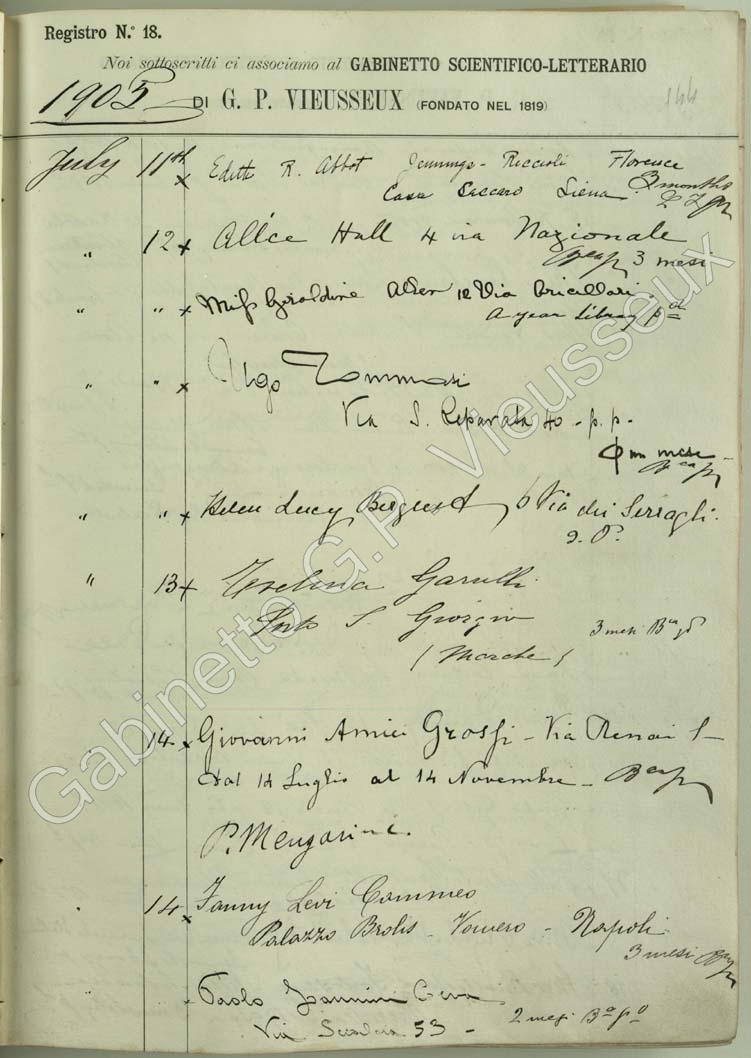 Registro N.° 18.
Noi sottoscritti ci associamo al GABINETTO SCIENTIFICO-LETTERARIO
1905 DI G. P. VIEUSSEUX (FONDATO NEL 1819) 144
July 11th x Edith R. Abbot Jennings-Riccioli Florence
Casa Saccaro Siena. 3 months
" 12 x Alice Hall 4 via Nazionale
3 mesi
" " x Miss Geraldine 12 Via Oricellari.
A year Library pd
" " x Ugo Tommasi
Via S. Reparata 40 - p. p. -
un mese -
" " x Helen Lucy 6 Via dei Serragli.
2. P.
" 13 x Garulli
Porto S. Giorgio
3 mesi
(Marche)
14 x Giovanni Amici Grossi - Via Renai 1 -
dal 14 Luglio al 14 Novembre -
P. Mengarini.
14 x Fanny Levi Cammeo
Palazzo - Vomero - Napoli.
3 mesi
Paolo
Via 53 - 2 mesi
Gabinetto G.P. Vieusseux